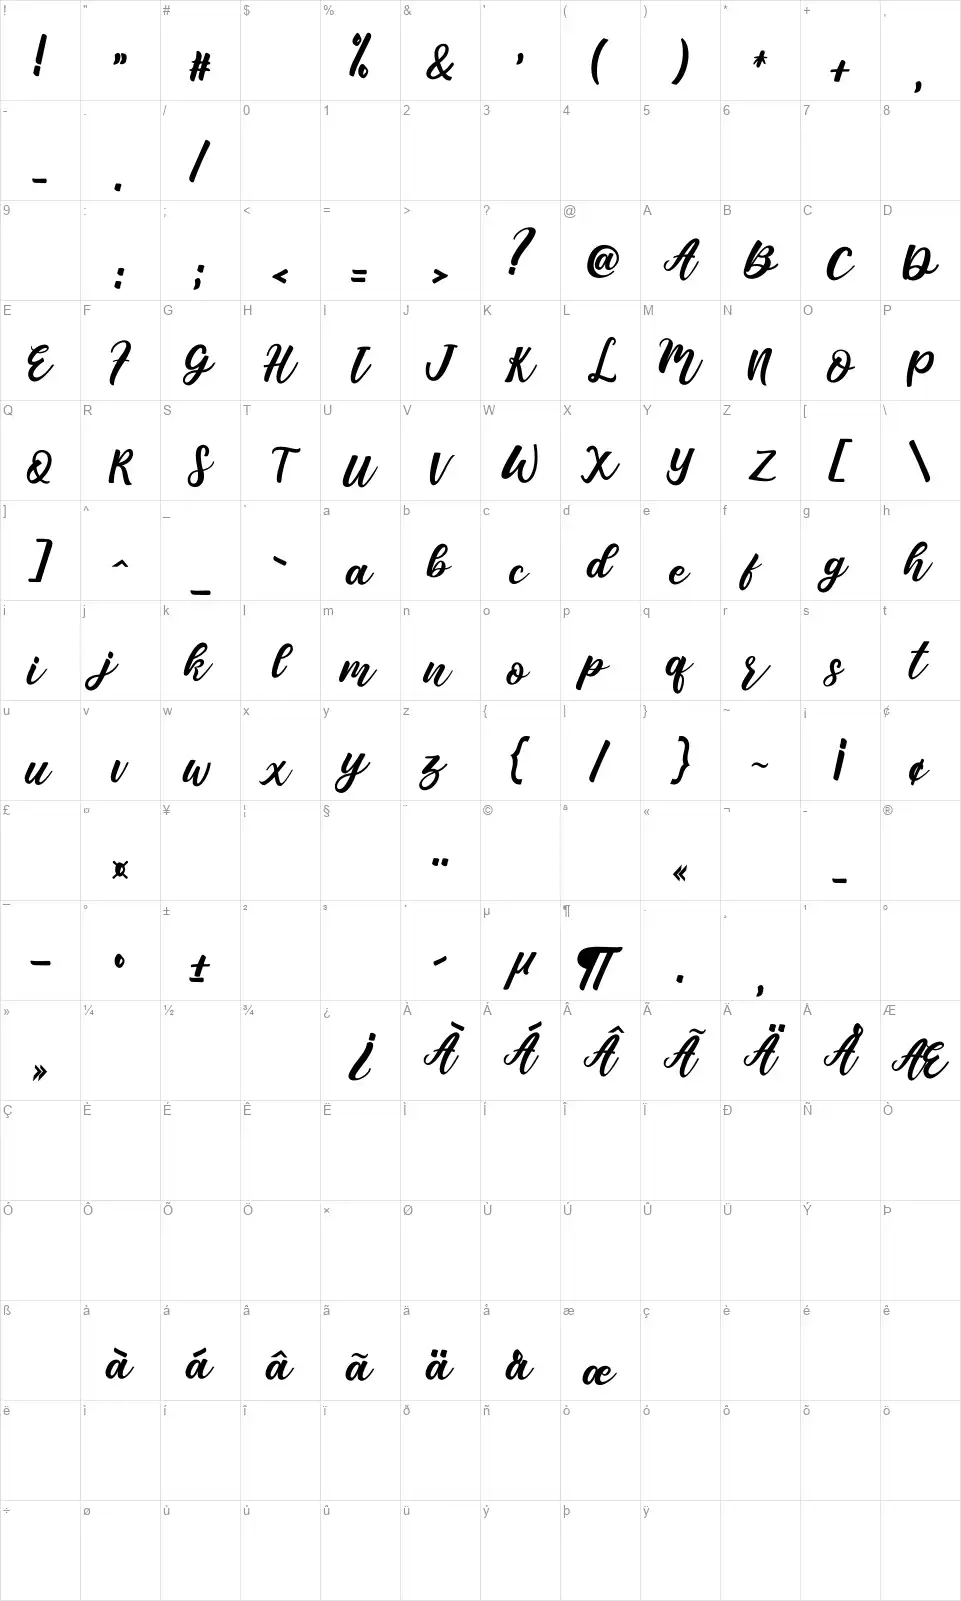 ! " # $ % & ' ( ) * + ,
! " # % & ' ( ) * + ,
- . / 0 1 2 3 4 5 6 7 8
- . /
9 : ; < = > ? @ A B C D
: ; < = > ? @ A B C D
E F G H I J K L M N O P
E F G H I J K L M N O P
Q R S T U V W X Y Z [ \
Q R S T U V W X Y Z [ \
] ^ _ ` a b c d e f g h
] ^ _ ` a b c d e f g h
i j k l m n o p q r s t
i j k l m n o p q r s t
u v w x y z { | } ~ ¡ ¢
u v w x y z { | } ~ ¡ ¢
£ ¤ ¥ ¦ § ¨ © ª « ¬ - ®
¤ ¨ « -
¯ ° ± ² ³ ´ µ ¶ · ¸ ¹ º
¯ ° ± ´ µ ¶ · ¸
» ¼ ½ ¾ ¿ À Á Â Ã Ä Å Æ
» ¿ À Á Â Ã Ä Å Æ
Ç È É Ê Ë Ì Í Î Ï Ð Ñ Ò
Ó Ô Õ Ö × Ø Ù Ú Û Ü Ý Þ
ß à á â ã ä å æ ç è é ê
à á â ã ä å æ
ë ì í î ï ð ñ ò ó ô õ ö
÷ ø ù ú û ü ý þ ÿ